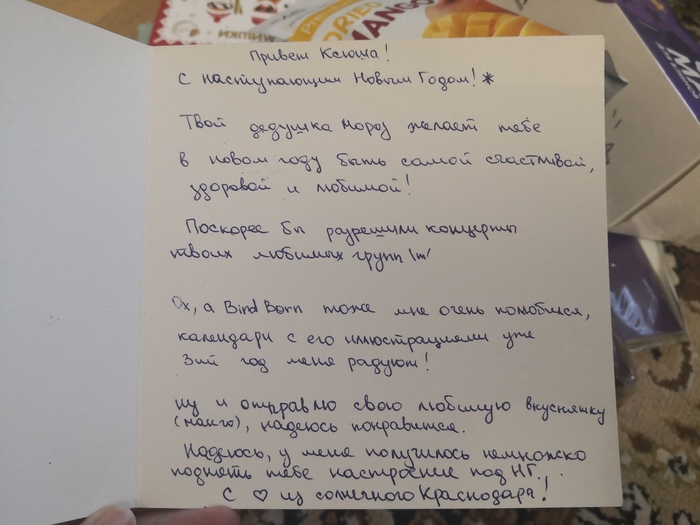 МИШКИ
DRIED
MANGO
Привет Ксюша!
С наступающим Новым Годом! *
Твой дедушка Мороз желает тебе
в новом году быть самой счастливой,
здоровой и любимой!
Поскорее бы разрешили концерты
твоих любимых групп \m/
Ох, а Bird Born тоже мне очень полюбился,
календари с его иллюстрациями уже
3ий год меня радуют!
ну и отправлю свою любимую вкусняшку
(манго), надеюсь понравится.
Надеюсь, у меня получилось немножко
поднять тебе настроение под НГ.
С ♡ из солнечного Краснодара!